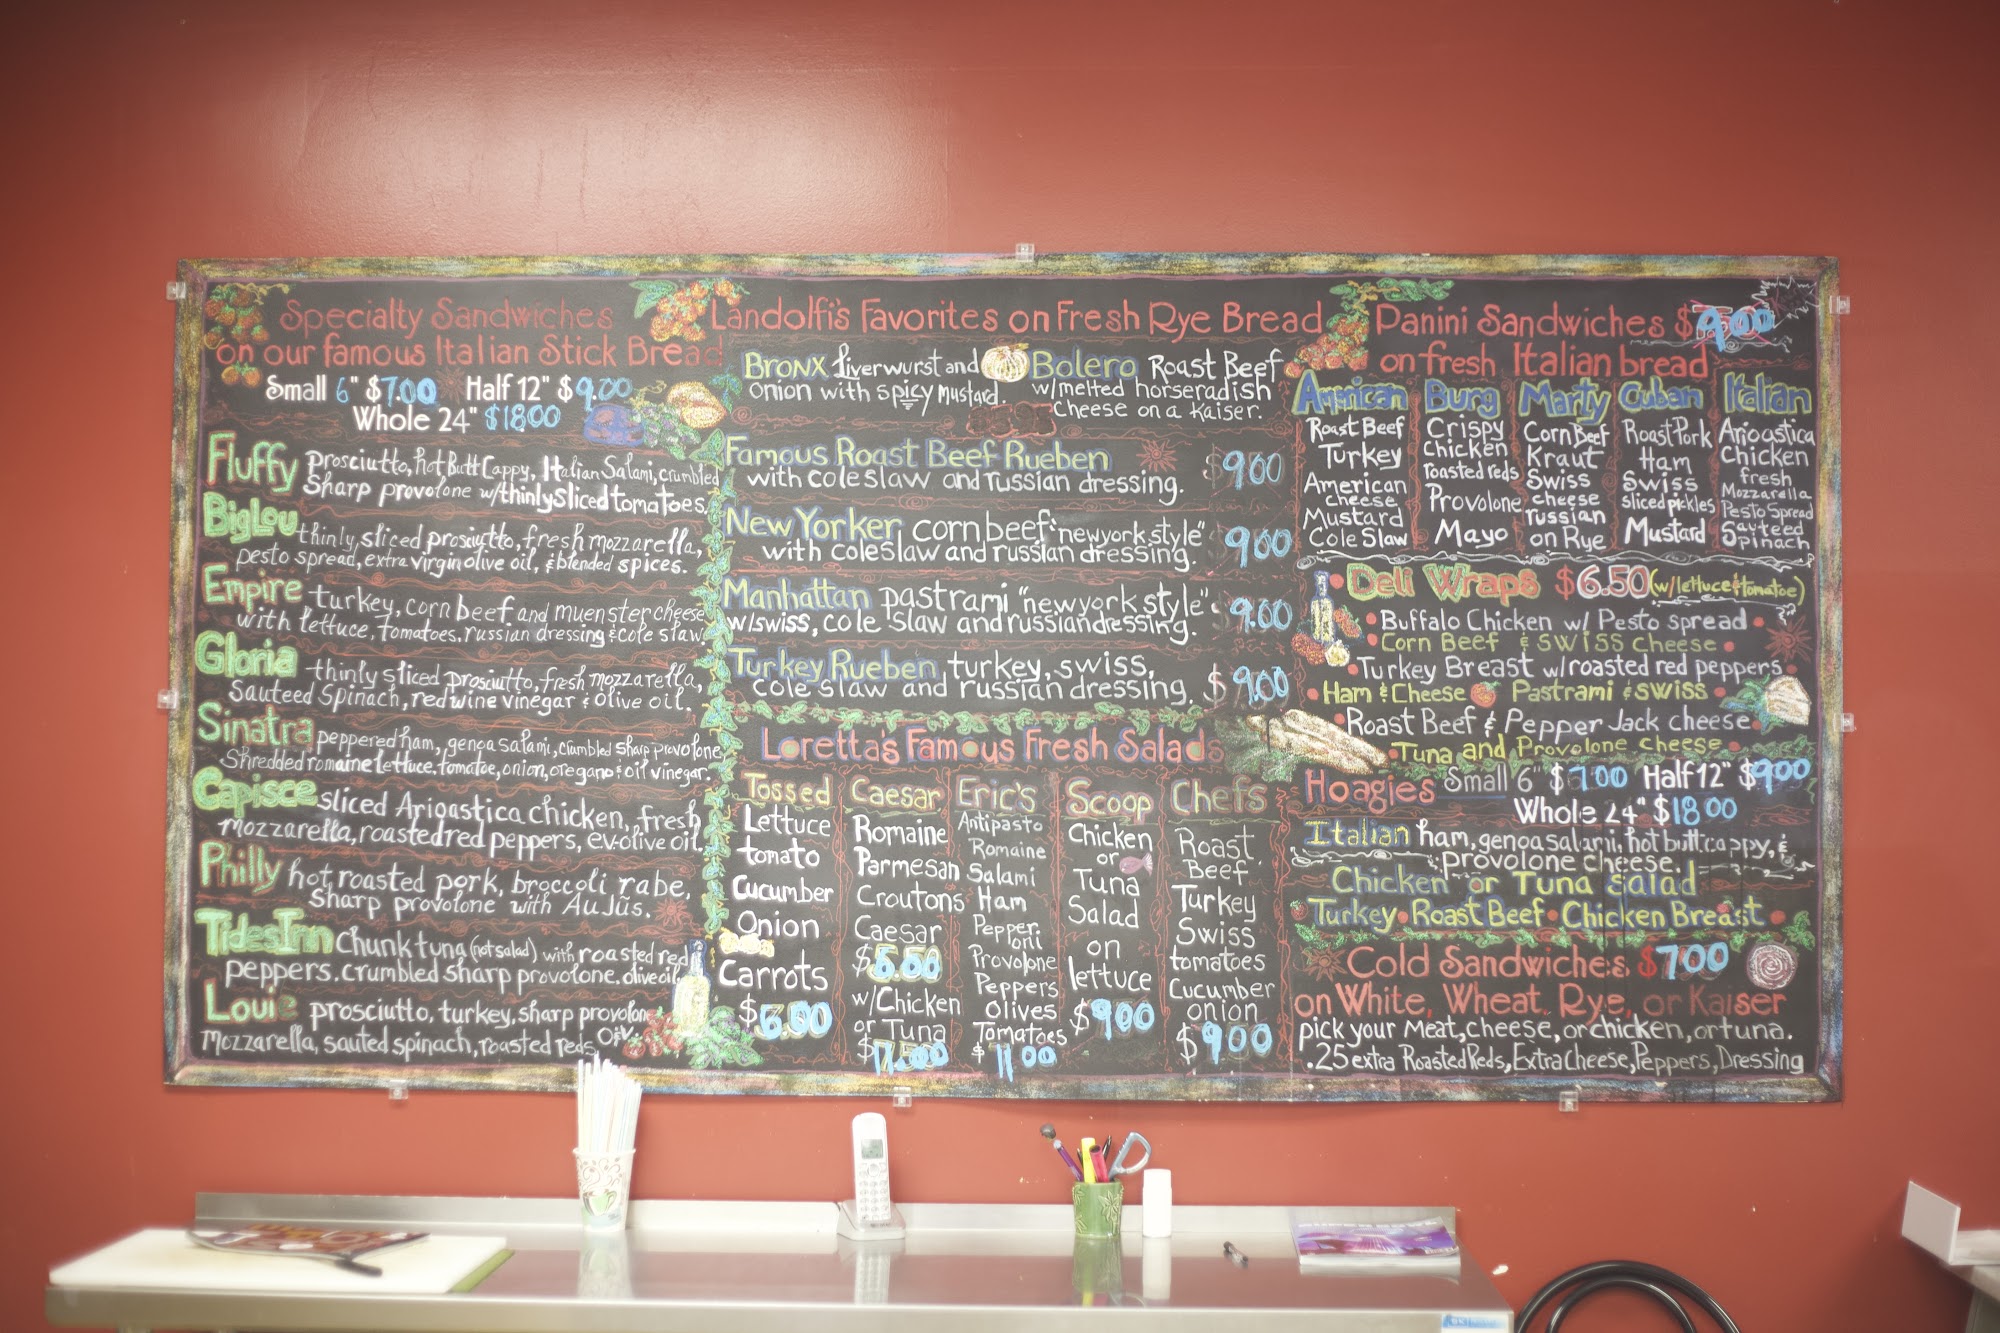 Specialty Sandwiches
on our famous Italian Stick Bread
Small 6" $7.00 Half 12" $9.00
Whole 24" $18.00
Fluffy Prosciutto, Hot Butt Cappy, Italian Salami, crumbled
Sharp provolone w/thinly sliced tomatoes.
BigLou thinly sliced prosciutto, fresh mozzarella,
pesto spread, extra virgin olive oil, & blended spices.
Empire turkey, corn beef and muenster cheese
with lettuce, tomatoes, russian dressing & cole slaw
Gloria thinly sliced prosciutto, fresh mozzarella,
Sauteed Spinach, red wine vinegar & olive oil.
Sinatra peppered ham, genoa salami, crumbled sharp provolone,
Shredded romaine lettuce, tomato, onion, oregano & oil vinegar.
Capisce sliced Arioastica chicken, fresh
mozzarella, roasted red peppers, ev-olive oil,
Philly hot roasted pork, broccoli rabe,
Sharp provolone with AuJus.
TidesInn Chunk tuna (not salad) with roasted red
peppers. crumbled sharp provolone. olive oil
Louie prosciutto, turkey, sharp provolone
Mozzarella, sauted spinach, roasted reds
Landolfi's Favorites on Fresh Rye Bread
Bronx liverwurst and
onion with spicy mustard.
Bolero Roast Beef
w/melted horseradish
Cheese on a Kaiser.
Famous Roast Beef Rueben
with cole slaw and russian dressing. $9.00
New Yorker corn beef "newyork style"
with coleslaw and russian dressing. 9.00
Manhattan pastrami "newyork style"
w/swiss, cole slaw and russian dressing. 9.00
Turkey Rueben turkey, swiss,
cole slaw and russian dressing, $9.00
Loretta's Famous Fresh Salads
Tossed
Lettuce
tomato
Cucumber
Onion
Carrots
Caesar
Romaine
Parmesan
Croutons
Caesar
w/Chicken
or Tuna
Eric's
Antipasto
Romaine
Salami
Ham
Pepper
oni
Provolone
Peppers
Olives
Tomatoes
$ 11.00
Scoop
Chicken
or
Tuna
Salad
on
lettuce
$9.00
Chefs
Roast
Beef
Turkey
Swiss
tomatoes
Cucumber
onion
$9.00
Panini Sandwiches $9.00
on fresh Italian bread
American
Roast Beef
Turkey
American
cheese
Mustard
Cole Slaw
Burg
Crispy
Chicken
roasted reds
Provolone
Mayo
Marty
Corn Beef
Kraut
Swiss
cheese
russian
on Rye
Cuban
Roast Pork
Ham
Swiss
sliced pickles
Mustard
Italian
Arioastica
Chicken
fresh
Mozzarella
Pesto Spread
Sauteed
Spinach
Deli Wraps $6.50 (w/lettuce & tomatoe)
• Buffalo Chicken w/ Pesto spread •
• Corn Beef & Swiss Cheese •
• Turkey Breast w/roasted red peppers
• Ham & Cheese Pastrami & Swiss •
• Roast Beef & Pepper Jack cheese •
• Tuna and Provolone cheese •
Hoagies Small 6" $7.00 Half 12" $9.00
Whole 24" $18.00
Italian ham, genoa salami, hot butt cappy, &
provolone cheese.
Chicken or Tuna Salad
Turkey • Roast Beef • Chicken Breast
Cold Sandwiches $7.00
on White, Wheat, Rye, or Kaiser
pick your Meat, cheese, or chicken, or tuna.
.25 extra Roasted Reds, Extra Cheese, Peppers, Dressing